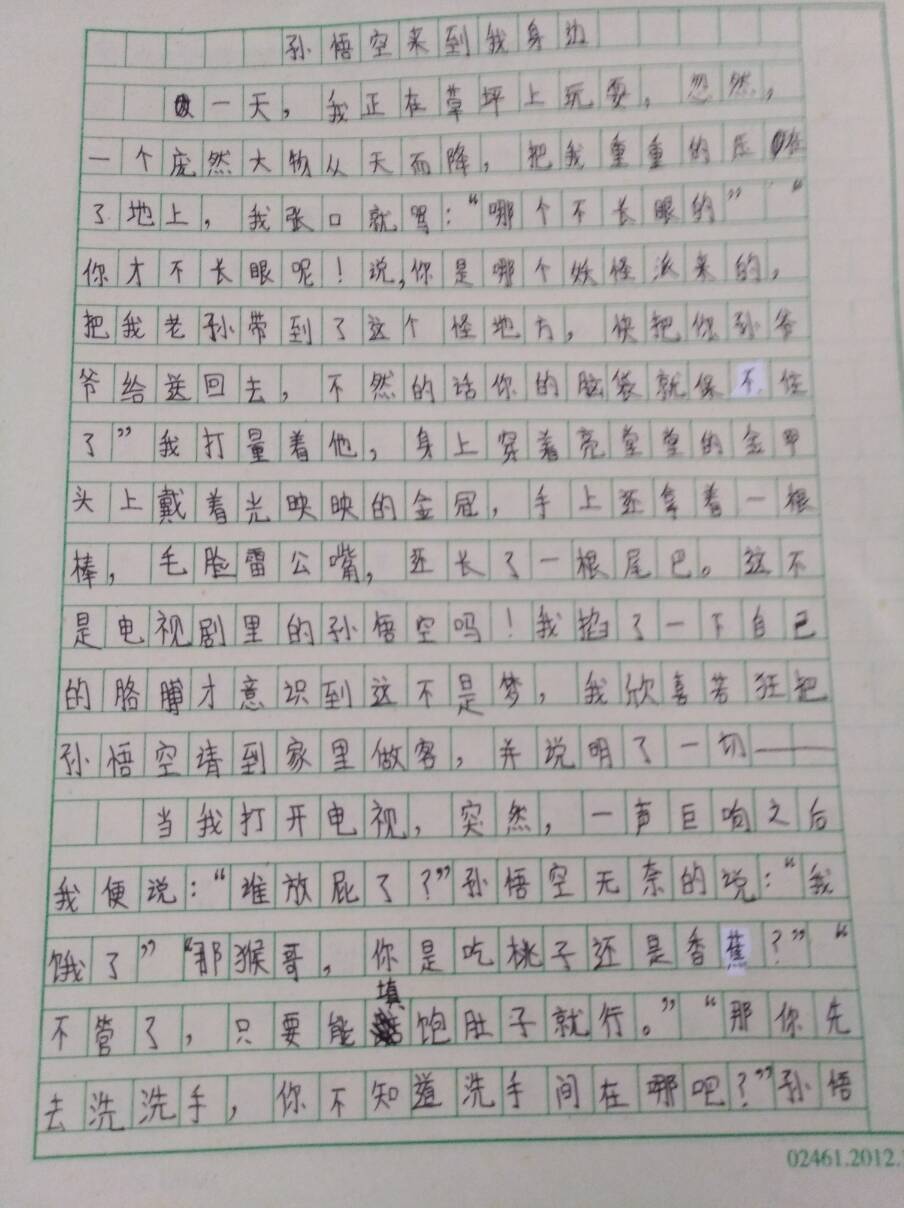 孙悟空来到我身边
一天，我正在草坪上玩耍。忽然，
一个庞然大物从天而降，把我重重的压在
了地上，我张口就骂：“哪个不长眼的”“
你才不长眼呢！说，你是哪个妖怪派来的，
把我老孙带到了这个怪地方，快把你孙爷
爷给送回去，不然的话你的脑袋就保不住
了”我打量着他，身上穿着亮堂堂的金甲
头上戴着光映映的金冠，手上还拿着一根
棒，毛脸雷公嘴，还长了一根尾巴。这不
是电视剧里的孙悟空吗！我掐了一下自己
的胳膊才意识到这不是梦，我欣喜若狂把
孙悟空请到家里做客，并说明了一切——
当我打开电视，突然，一声巨响之后
我便说：“谁放屁了？”孙悟空无奈的说：“我
饿了”“那猴哥，你是吃桃子还是香蕉？”“
不管了，只要能填饱肚子就行。”“那你先
去洗洗手，你不知道洗手间在哪吧？”孙悟
02461.2012.